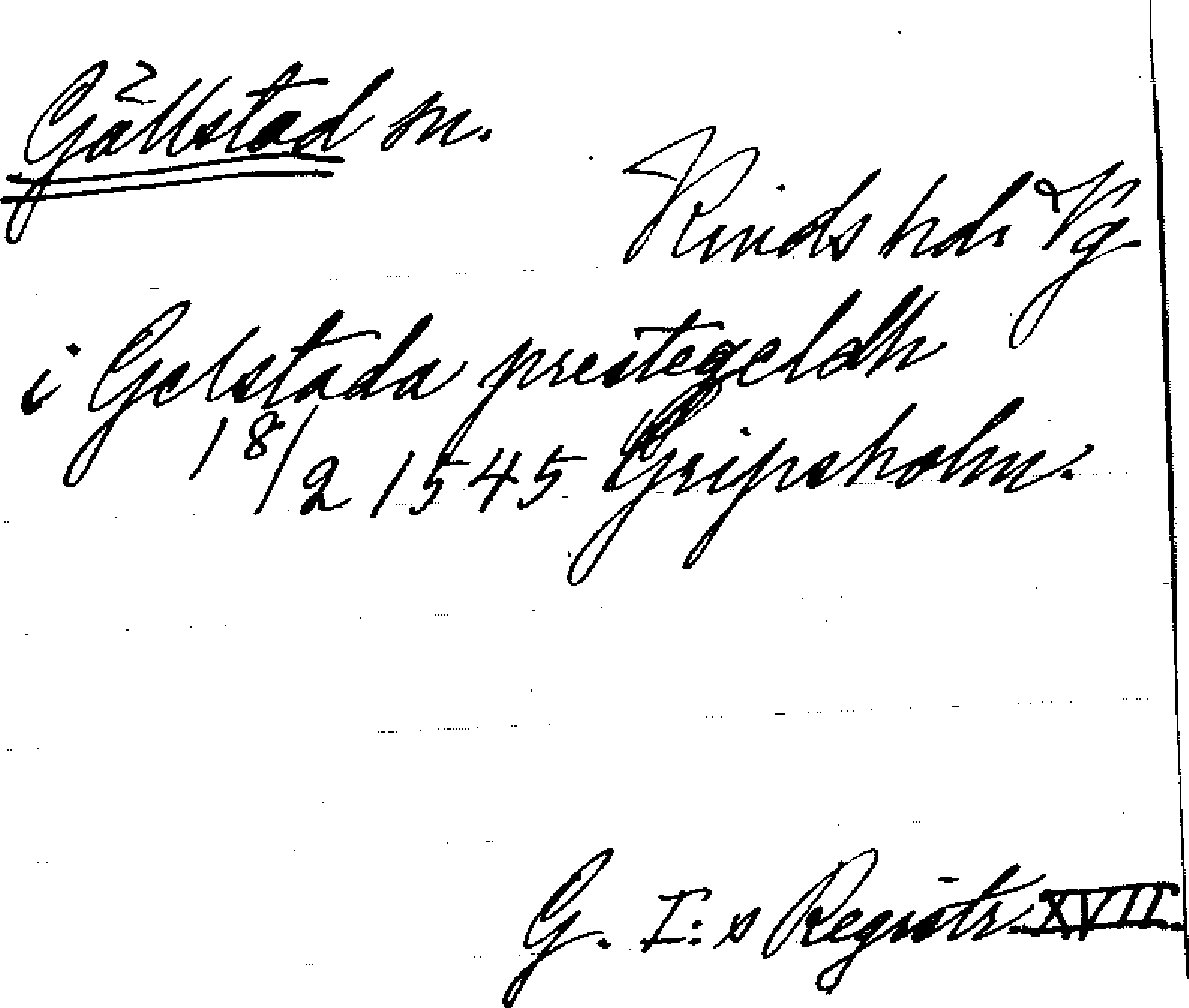 Gällstad sn.
Kinds hd. Vg
i Gelstada prestegeldh
18/2 1545 Gripsholm.
G. I:s Registr. XVII.